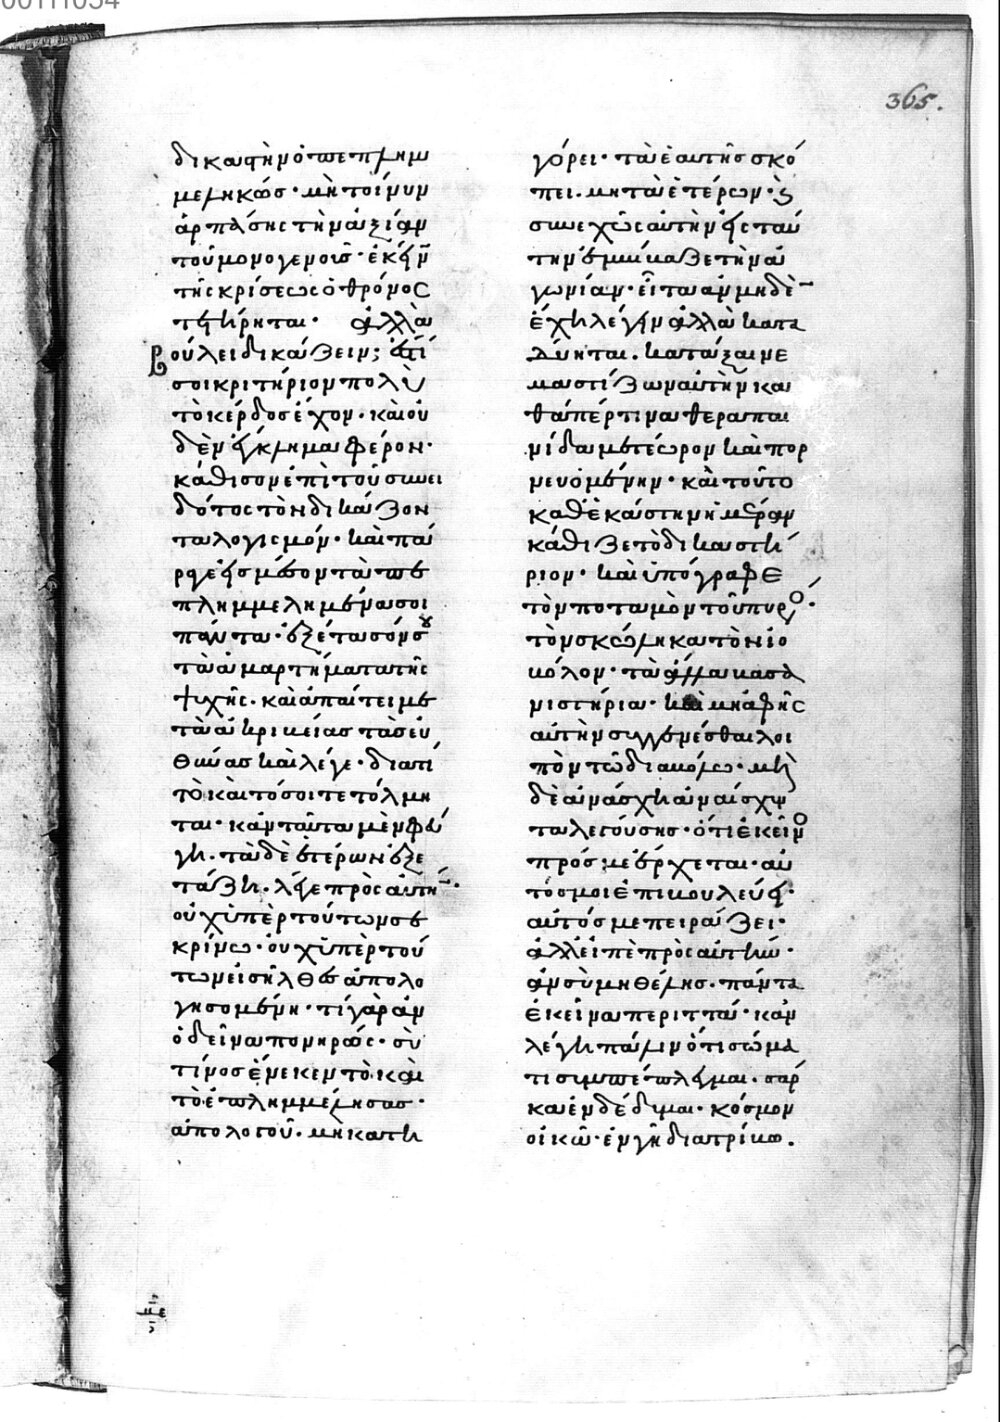 365.
δικασὴν ὁ πεπλημ
μεληκώς· μὴ τοίνυν
ἁρπάσης τὴν ἀξίαν
τοῦ μονογενοῦς· ἐκείν
της κρίσεως ὁ θρόνος
τετήρηται· ἀλλὰ
βούλει δικάζειν; ἔστί
σοι κριτήριον πολὺ
τὸ κέρδος ἔχον· καὶ οὐ
δὲν ἔγκλημα φέρον·
κάθισον ἐπὶ τοῦ συνει
δότος τὸν δικάζον
τα λογισμόν· καὶ πά
ραγε εἰς μέσον τὰ πε
πλημμελημένα σοι
πάντα· ἐξέτασόν σου
τὰ ἁμαρτήματα τῆς
ψυχῆς· καὶ ἀπαίτει με
τὰ ἀκριβείας τὰς εὐ
θύνας καὶ λέγε· διατί
τὸ καὶ τό σοι τετόλμη
ται· κἂν ταῦτα μὲν φύ
γη· τὰ δὲ ἑτέρων ἐξε
τάζη· λέγε πρὸς αὐτήν·
οὐχ ὑπὲρ τούτων σε
κρίνω· οὐχ ὑπὲρ τού
των εἰσῆλθες ἀπολο
γησομένη· τί γὰρ ἂν
ὁ δεῖνα πονηρός· σὺ
τίνος ἕνεκεν τὸ καὶ
τὸ ἐπλημμέλησας·
ἀπολογοῦ· μὴ κατη
γόρει· τὰ ἑαυτῆς σκό
πει· μὴ τὰ ἑτέρων· καὶ
συνεχῶς αὐτὴν εἰς ταύ
την ἐμβίβαζε τὴν ἀ
γωνίαν· εἶτα ἂν μηδὲν
ἔχη λέγειν ἀλλὰ κατα
δύηται· κατάξαινε
μαστίζων αὐτὴν κα
θάπερ τινα θεραπαι
νίδα μετέωρον καὶ πορ
νευομένην· καὶ τοῦτο
καθ' ἑκάστην ἡμέραν
κάθιζε τὸ δικαστή
ριον· καὶ ὑπόγραφε
τὸν ποταμὸν τοῦ πυρός·
τὸν σκώληκα τὸν ἰο
βόλον· τὰ ἄλλα βασα
νιστήρια· καὶ μὴ ἀφῆς
αὐτὴν συγγενέσθαι λοι
πὸν τῶ διαβόλω· μὴ
δὲ ἀνάσχη ἀναίσχυν
τα λεγούσης· ὅτι ἐκεῖνος
πρός με ἔρχεται· αὐ
τός μοι ἐπιβουλεύει·
αὐτός με πειράζει·
ἀλλ' εἰπὲ πρὸς αὐτήν·
ἂν σὺ μὴ θέλης· πάντα
ἐκεῖνα περιττά· κἂν
λέγη πάλιν ὅτι σώμα
τι συμπέπλεγμαι· σάρ
κα ἐνδέδυμαι· κόσμον
οἰκῶ· ἐν γῆ διατρίβω.